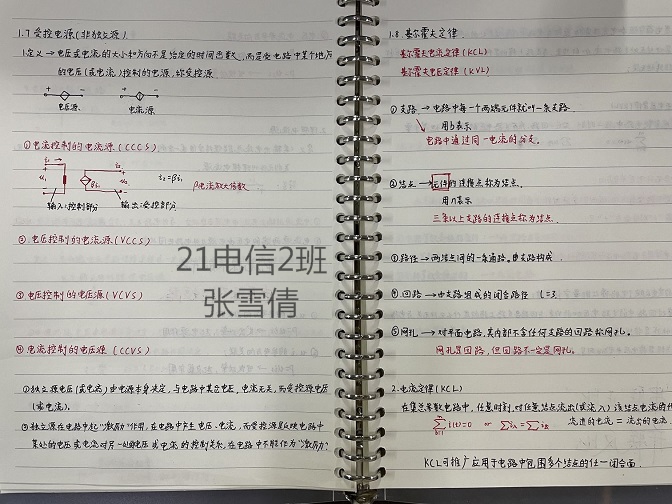 1.7 受控电源(非独立源).
1.定义 → 电压或电流的大小和方向不是给定的时间函数,而是受电路中某个地方
的电压(或电流)控制的电源,称受控源
+ -
+ -
电压源
电流源
①电流控制的电流源(CCCS)
i₂=βi₁
β电流放大倍数
输入:控制部分
输出:受控部分
② 电压控制的电流源(VCCS)
③ 电压控制的电压源(VCVS)
④ 电流控制的电压源(CCVS)
①独立源电压(或电流)由电源本身决定,与电路中其它电压、电流无关,而受控源电压
(或电流).
②独立源在电路中起"激励"作用,在电路中产生电压、电流,而受控源是反映电路中
某处的电压或电流对另一处的电压或电流的控制关系,在电路中不能作为"激励"
21电信2班
张雪倩
1.8.基尔霍夫定律.
基尔霍夫电流定律(KCL)
基尔霍夫电压定律(KVL)
①支路 → 电路中每一个两端元件就叫一条支路
用b表示
电路中通过同一电流的分支.
②结点 → 元件的连接点称为结点.
用n表示
三条以上支路的连接点称为结点.
③路径 → 两结点间的一条通路.由支路构成.
④回路 → 由支路组成的闭合路径 l=3
⑤网孔 → 对平面电路,其内部不含任何支路的回路称网孔.
网孔是回路,但回路不一定是网孔.
2.电流定律(KCL)
在集总参数电路中,任意时刻,对任意结点流出(或流入)该结点电流的代
流进的电流=流出的电流.
KCL可推广应用于电路中包围多个结点的任一闭合面.